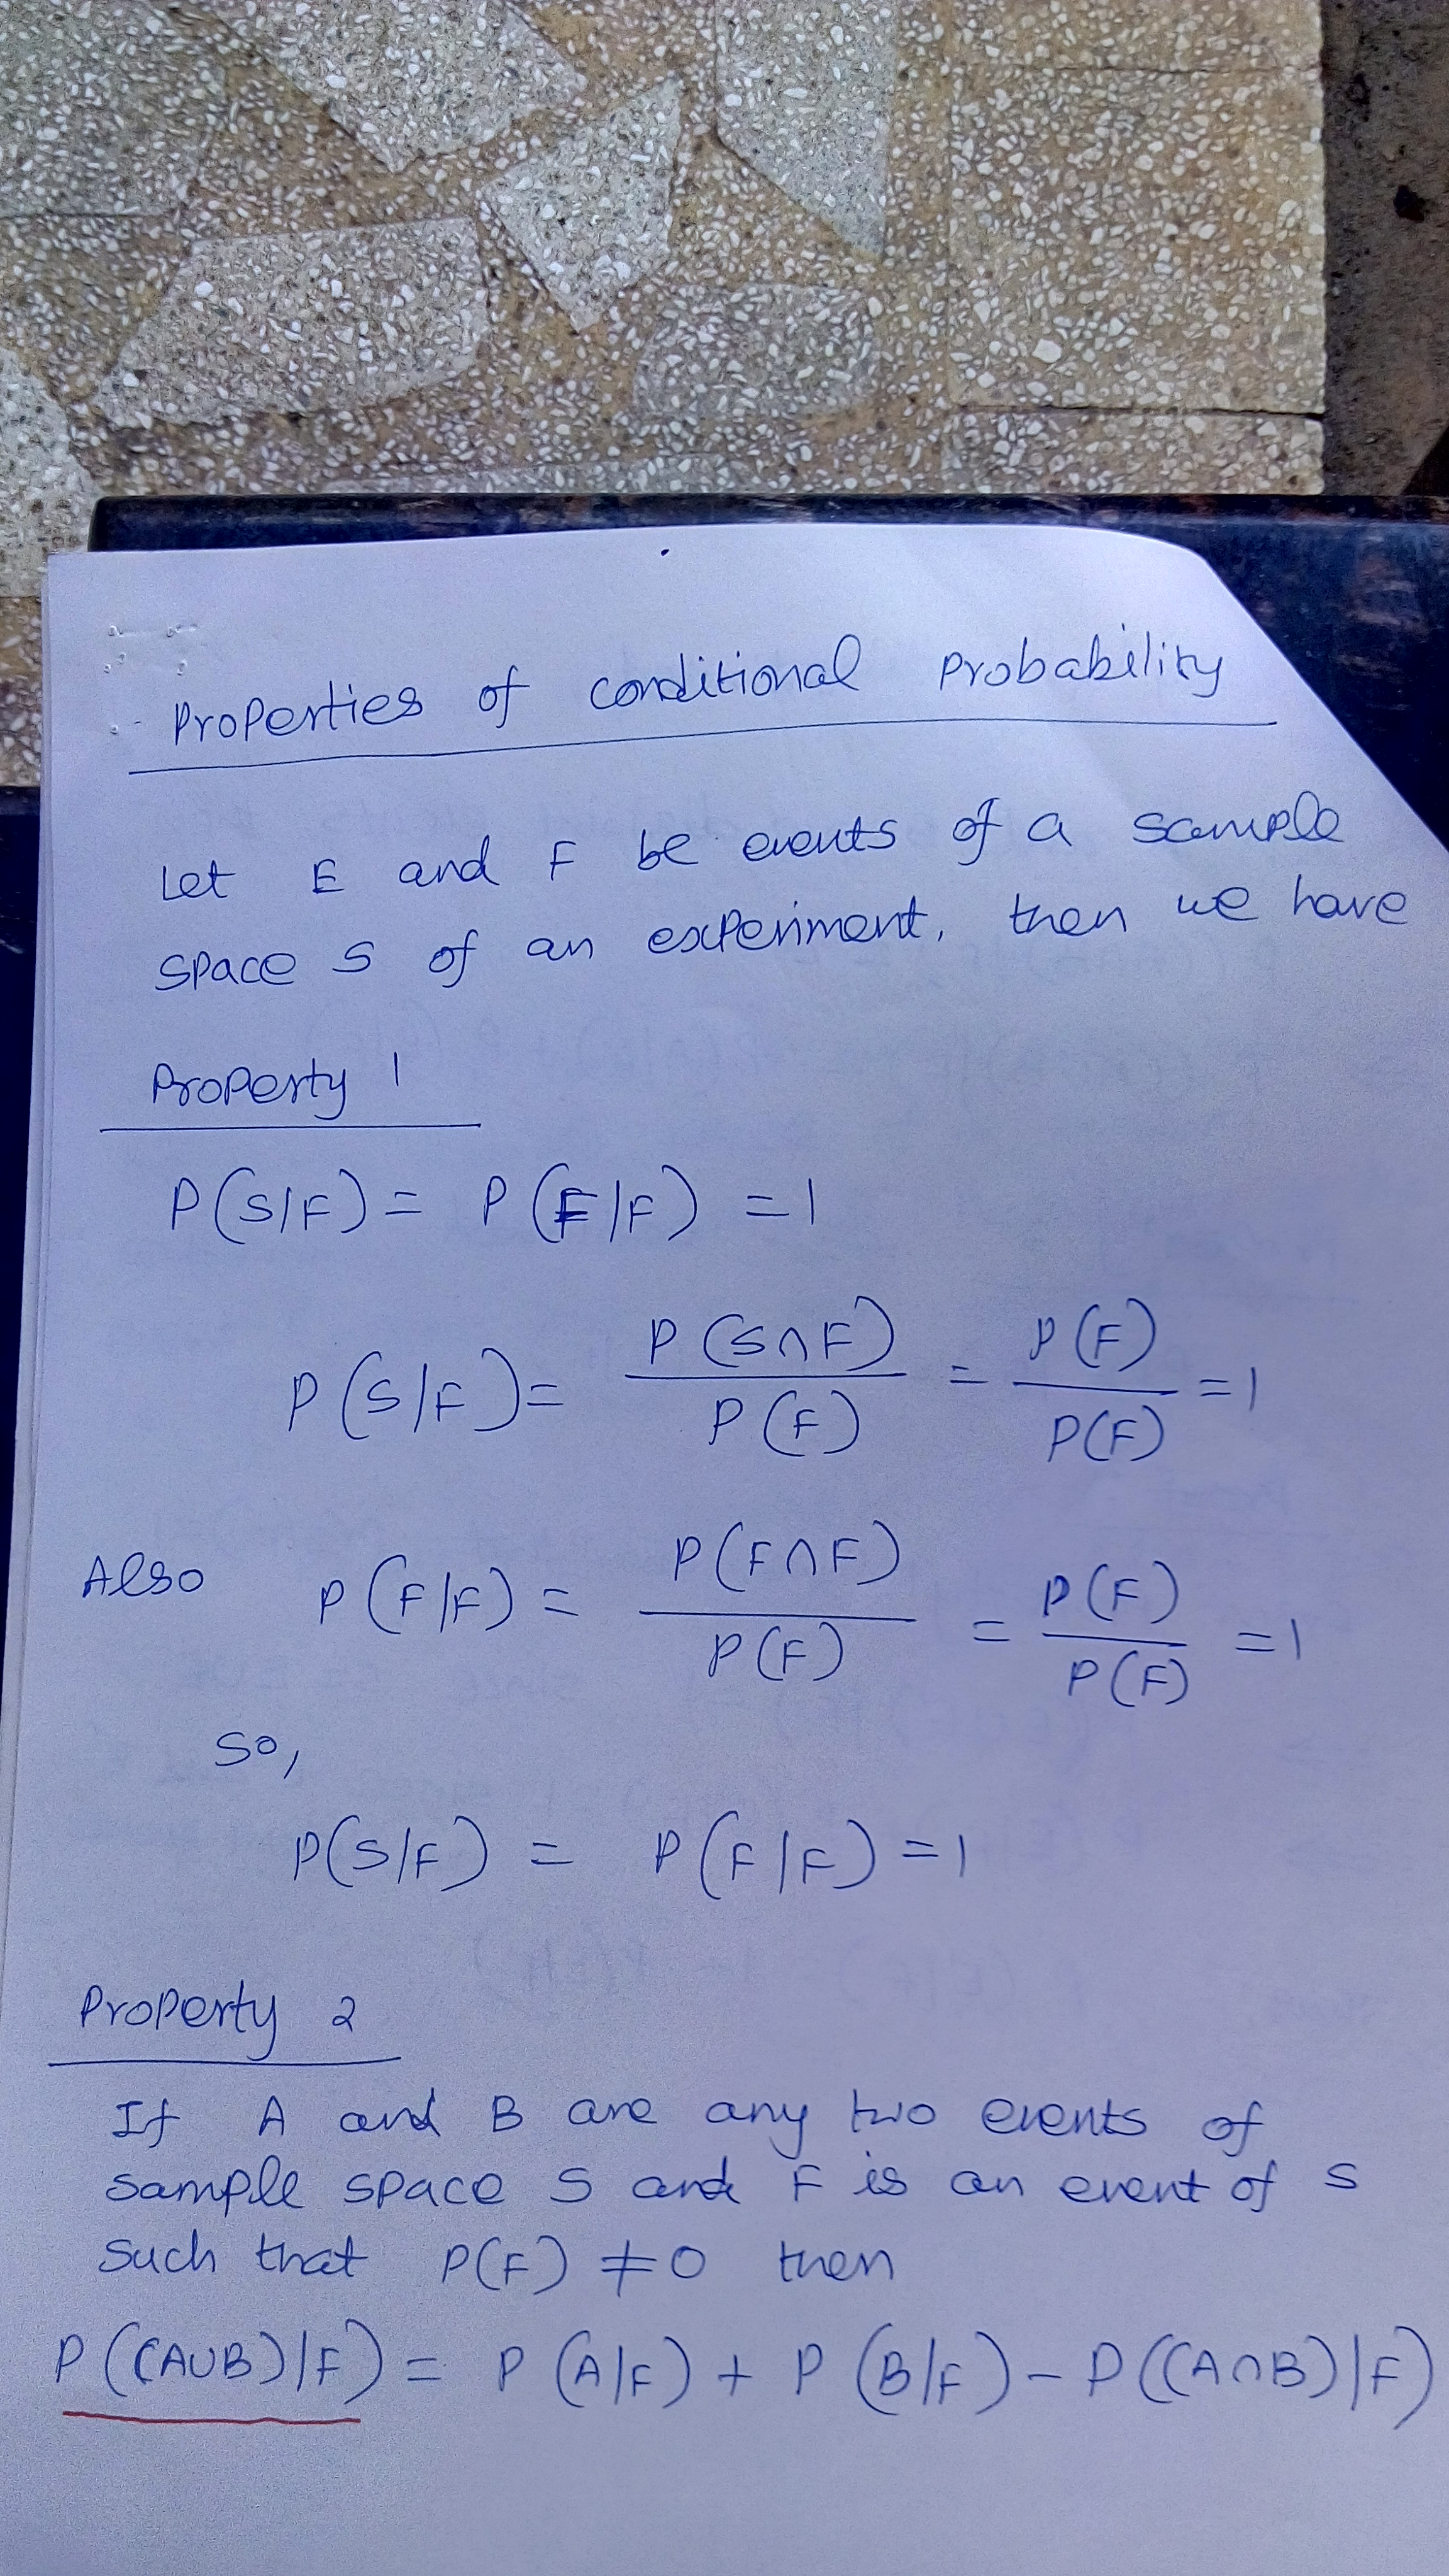 Properties of conditional Probability
Let E and F be events of a sample
space S of an experiment, then we have
Property 1
P(S|F) = P(F|F) = 1
P(S|F) = P(S∩F)/P(F) = P(F)/P(F) = 1
Also P(F|F) = P(F∩F)/P(F) = P(F)/P(F) = 1
So,
P(S|F) = P(F|F) = 1
Property 2
If A and B are any two events of
sample space S and F is an event of S
such that P(F) ≠ 0 then
P((A∪B)|F) = P(A|F) + P(B|F) - P((A∩B)|F)